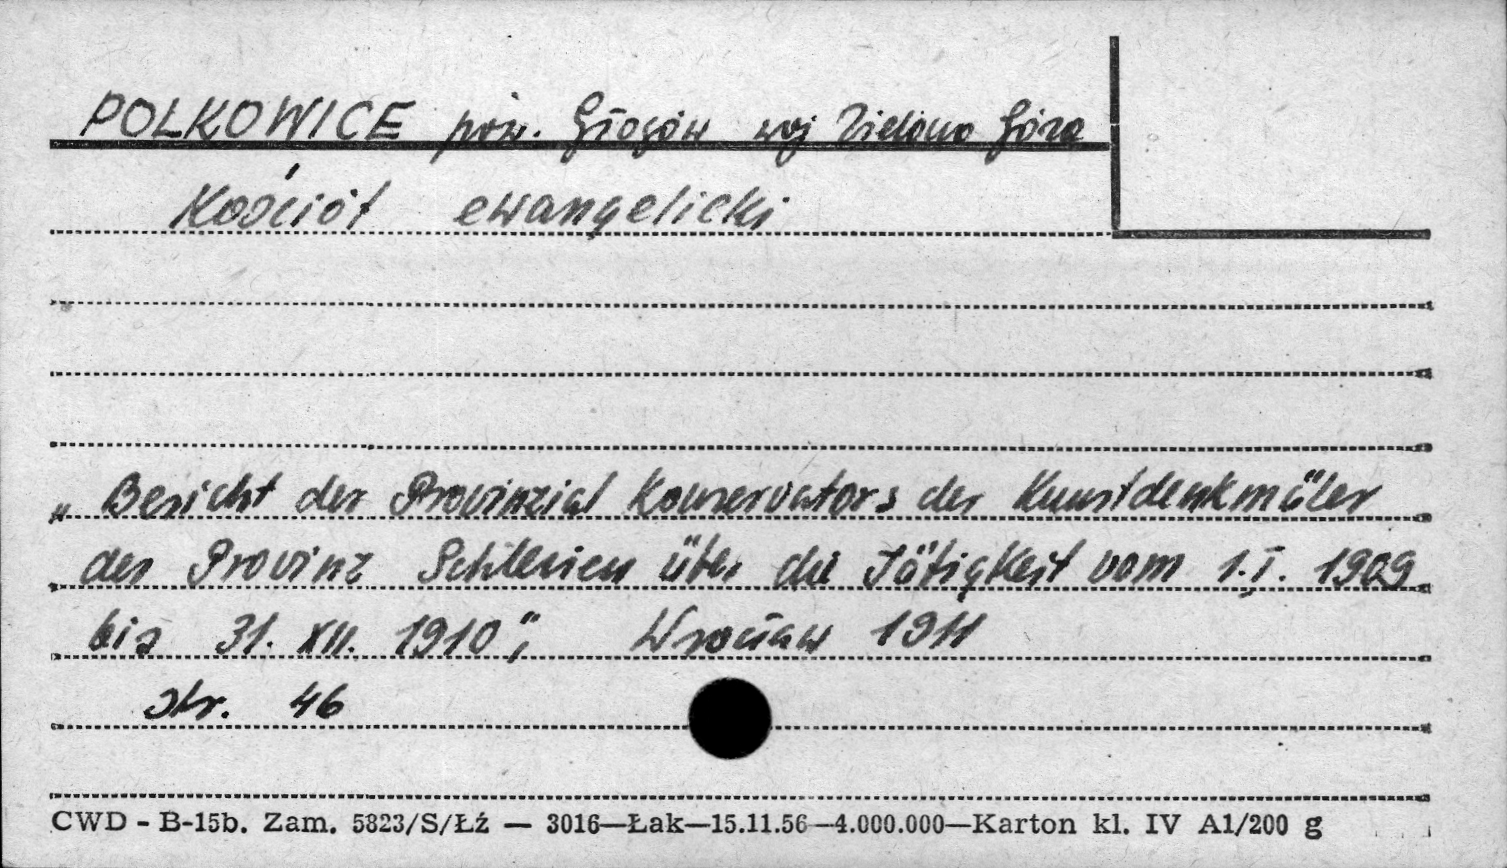 POLKOWICE pow. Głogów woj Zielona Góra
Kościół ewangelicki
„Bericht der Provinzial Konservators der Kunstdenkmäler
der Provinz Schlesien über die Tätigkeit vom 1.I. 1909
bis 31. XII. 1910", Wrocław 1911
str. 46
CWD - B-15b. Zam. 5823/S/Łź — 3016—Łak—15.11.56—4.000.000—Karton kl. IV A1/200 g